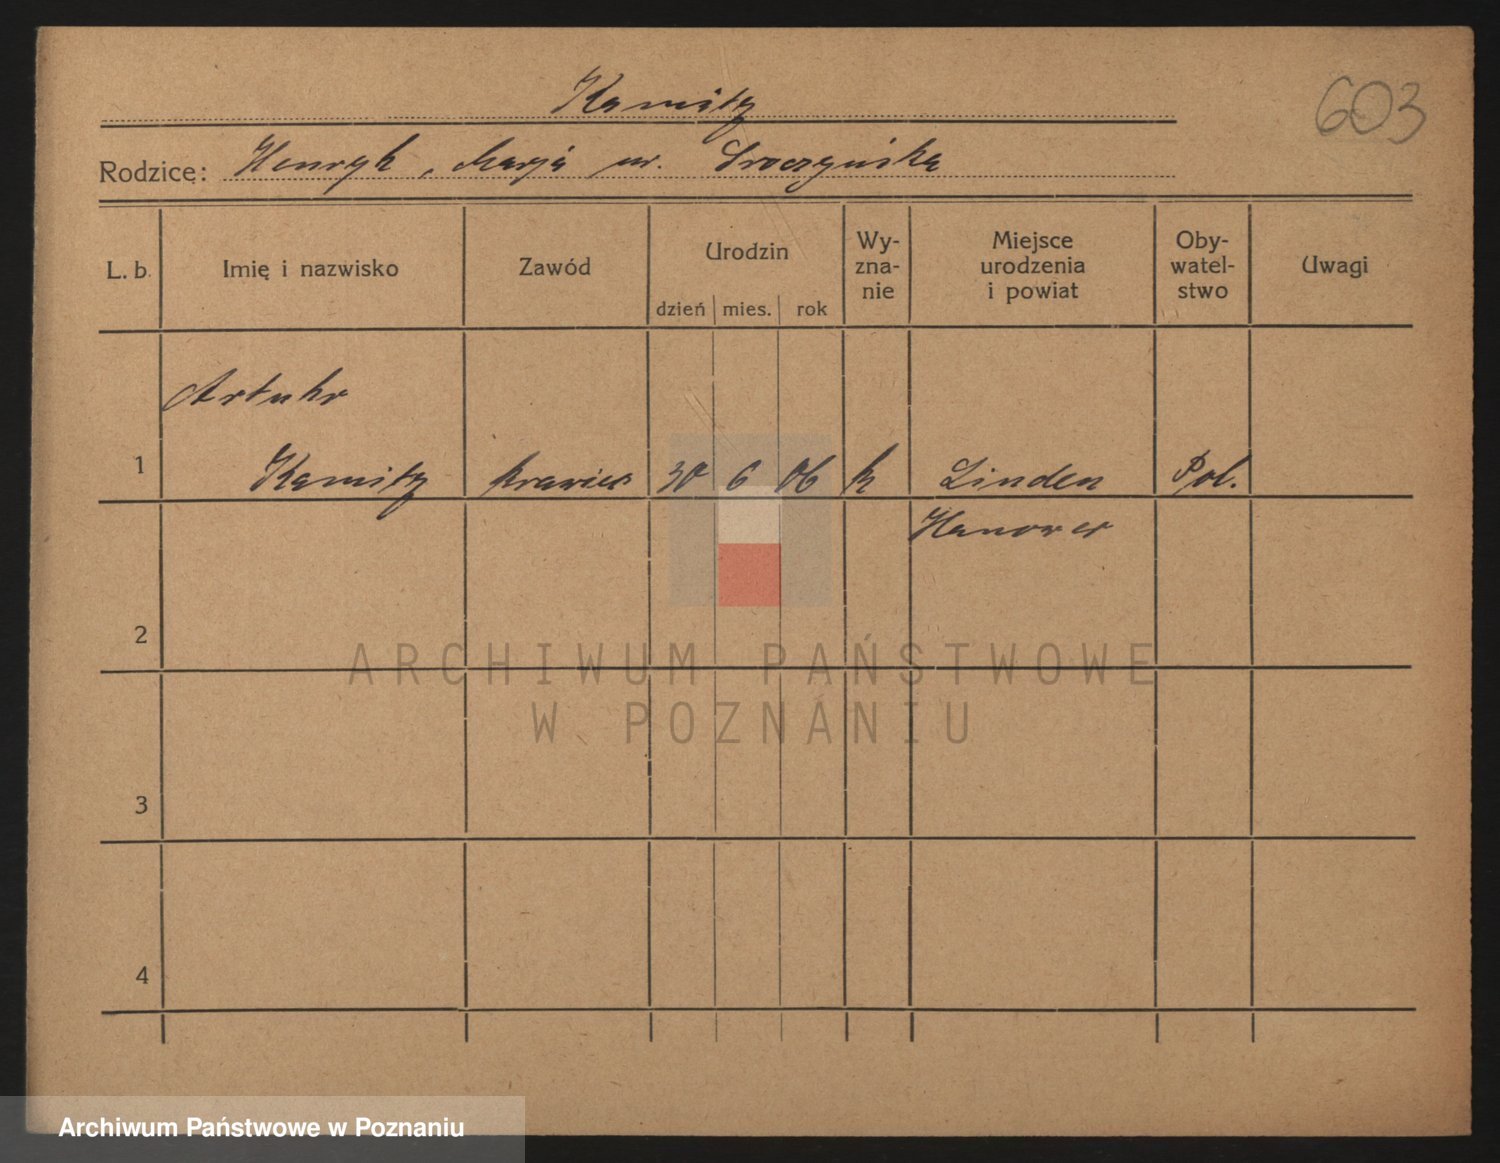 Kamitz
603
Rodzice: Henryk, Marja ur. Sroczyńska
L. b. Imię i nazwisko Zawód Urodzin dzień mies. rok Wy-zna-nie Miejsce urodzenia i powiat Oby-watel-stwo Uwagi
Artuhr
1 Kamitz krawiec 30 6 06 k Linden Pol.
Hanower
2
ARCHIWUM PAŃSTWOWE
W POZNANIU
3
4
Archiwum Państwowe w Poznaniu